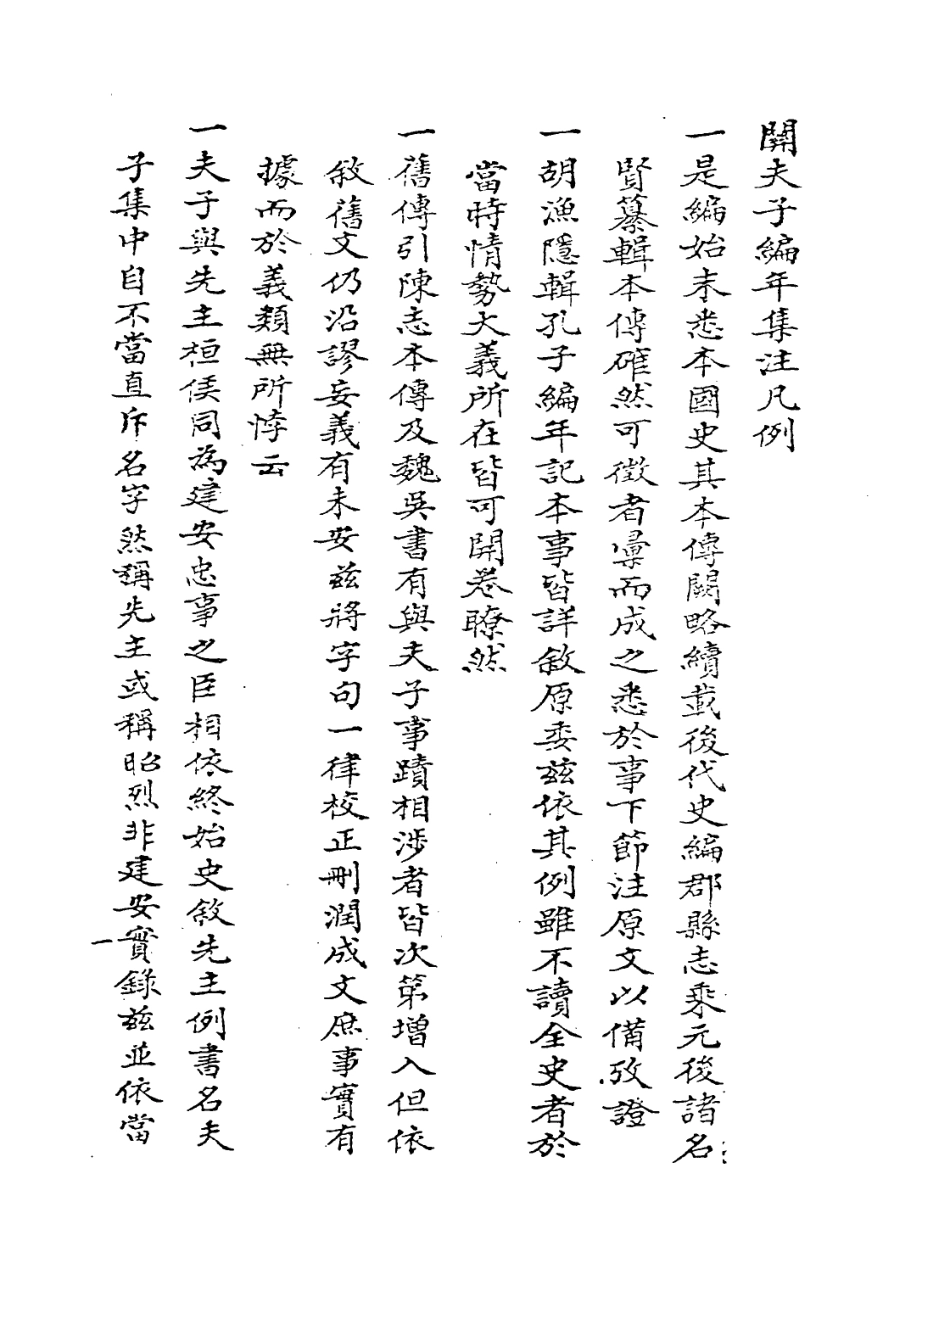 關夫子編年集注凡例
一是編始末悉本國史其本傳闕略續載後代史編郡縣志乘元後諸名
賢纂輯本傳確然可徵者彙而成之悉於事下節注原文以備攷證
一胡漁隱輯孔子編年記本事皆詳敘原委茲依其例雖不讀全史者於
當時情勢大義所在皆可開卷瞭然
一舊傳引陳志本傳及魏吳書有與夫子事蹟相涉者皆次第增入但依
敘舊文仍沿謬妄義有未安茲將字句一律校正刪潤成文庶事實有
據而於義類無所悖云
一夫子與先主桓侯同為建安忠事之臣相依終始史敘先主例書名夫
子集中自不當直斥名字然稱先主或稱昭烈非建安實錄茲並依當
一